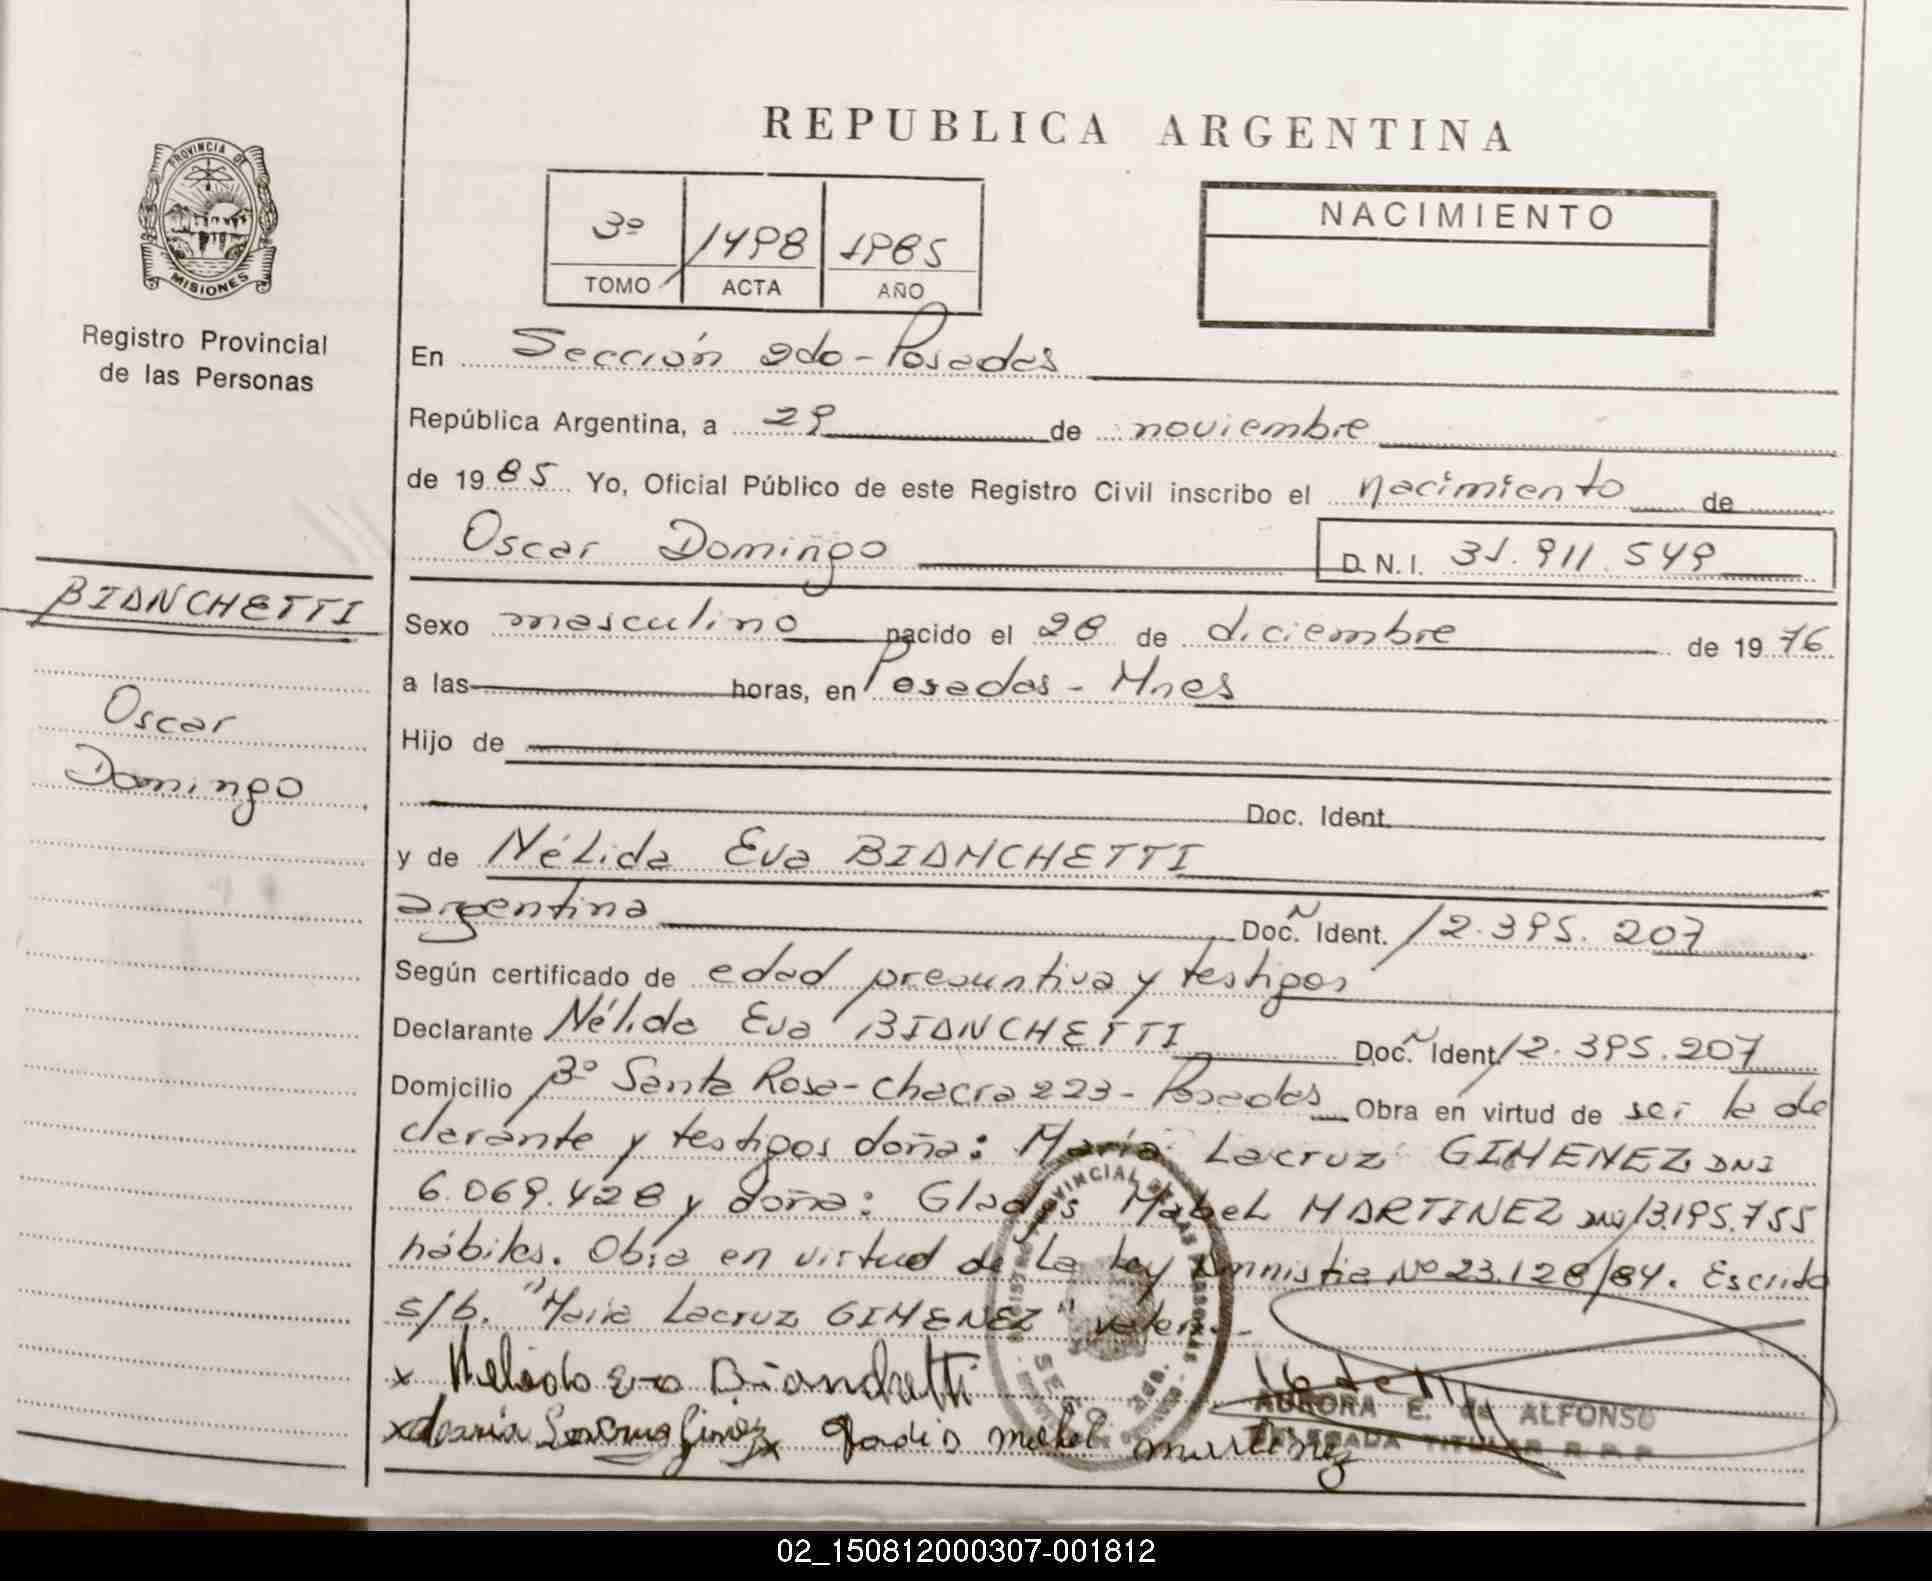 REPUBLICA ARGENTINA
PROVINCIA DE
MISIONES
Registro Provincial
de las Personas
3º 1498 1985
TOMO ACTA AÑO
NACIMIENTO
En Sección 2do - Posadas
República Argentina, a 29 de noviembre
de 1985 Yo, Oficial Público de este Registro Civil inscribo el nacimiento de
Oscar Domingo D.N.I. 31.911.549
BIANCHETTI
Oscar
Domingo
Sexo masculino nacido el 28 de diciembre de 1976
a las horas, en Posadas - Mnes
Hijo de
Doc. Ident.
y de Nélida Eva BIANCHETTI
argentina Doc. Ident. 12.395.207
Según certificado de edad presuntiva y testigos
Declarante Nélida Eva BIANCHETTI Doc. Ident. 12.395.207
Domicilio Bº Santa Rosa - Chacra 223 - Posadas Obra en virtud de ser la de
clarante y testigos doña: María Lacruz GIMENEZ DNI
6.069.428 y doña: Gladys Mabel MARTINEZ DNI 13.195.755
hábiles. Obra en virtud de la Ley Amnistia Nº 23.128/84. Escrito
s/b. "María Lacruz GIMENEZ" valen.-
x Nelida Eva Bianchetti
AURORA E. de ALFONSO
DELEGADA TITULAR R.P.P.
x María Lacruz Gimenez x Gladis mabel martinez
02_150812000307-001812